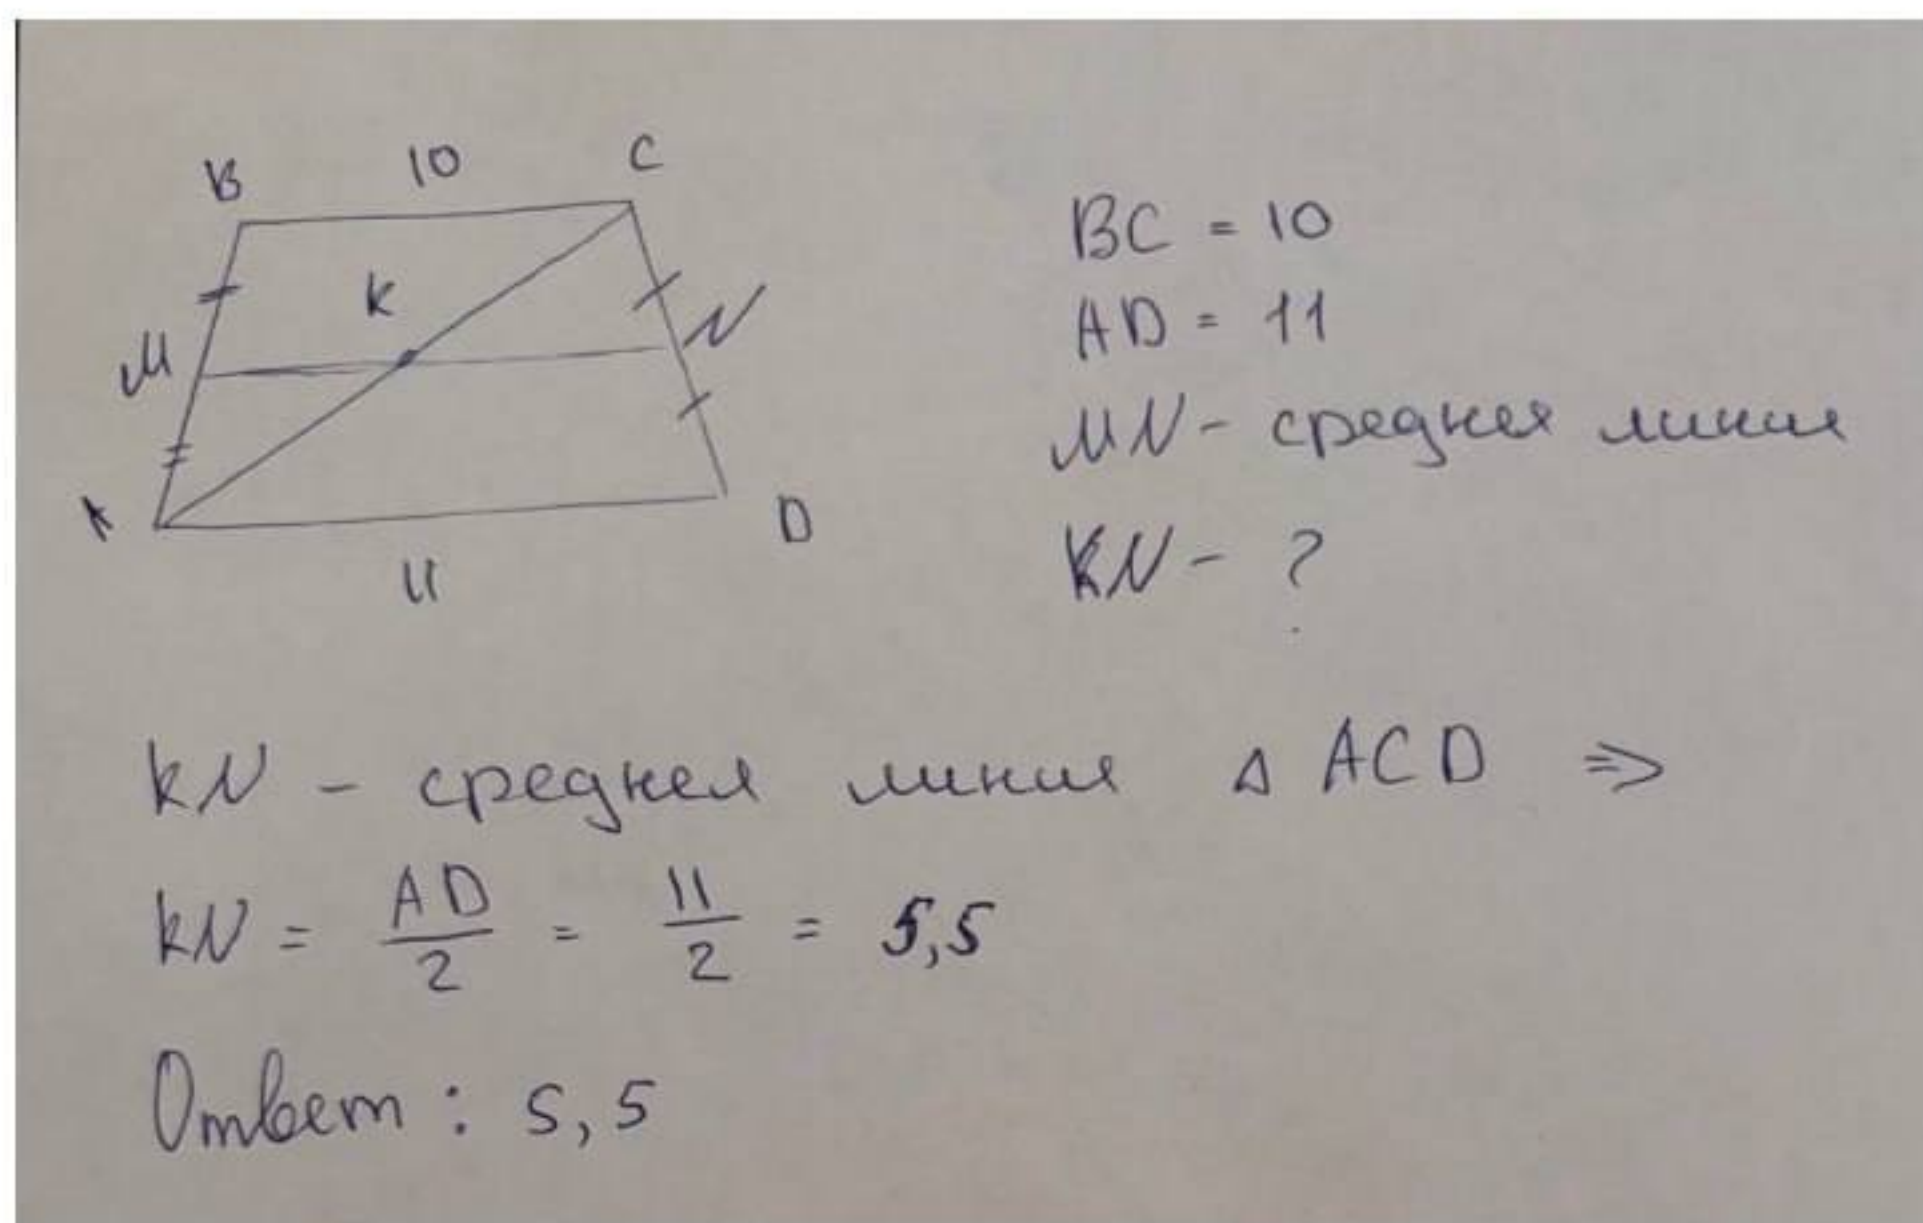 B 10 C
K
M N
A D
11
BC = 10
AD = 11
MN - средняя линия
KN - ?
KN - средняя линия Δ ACD ⇒
KN = AD/2 = 11/2 = 5,5
Ответ : 5,5